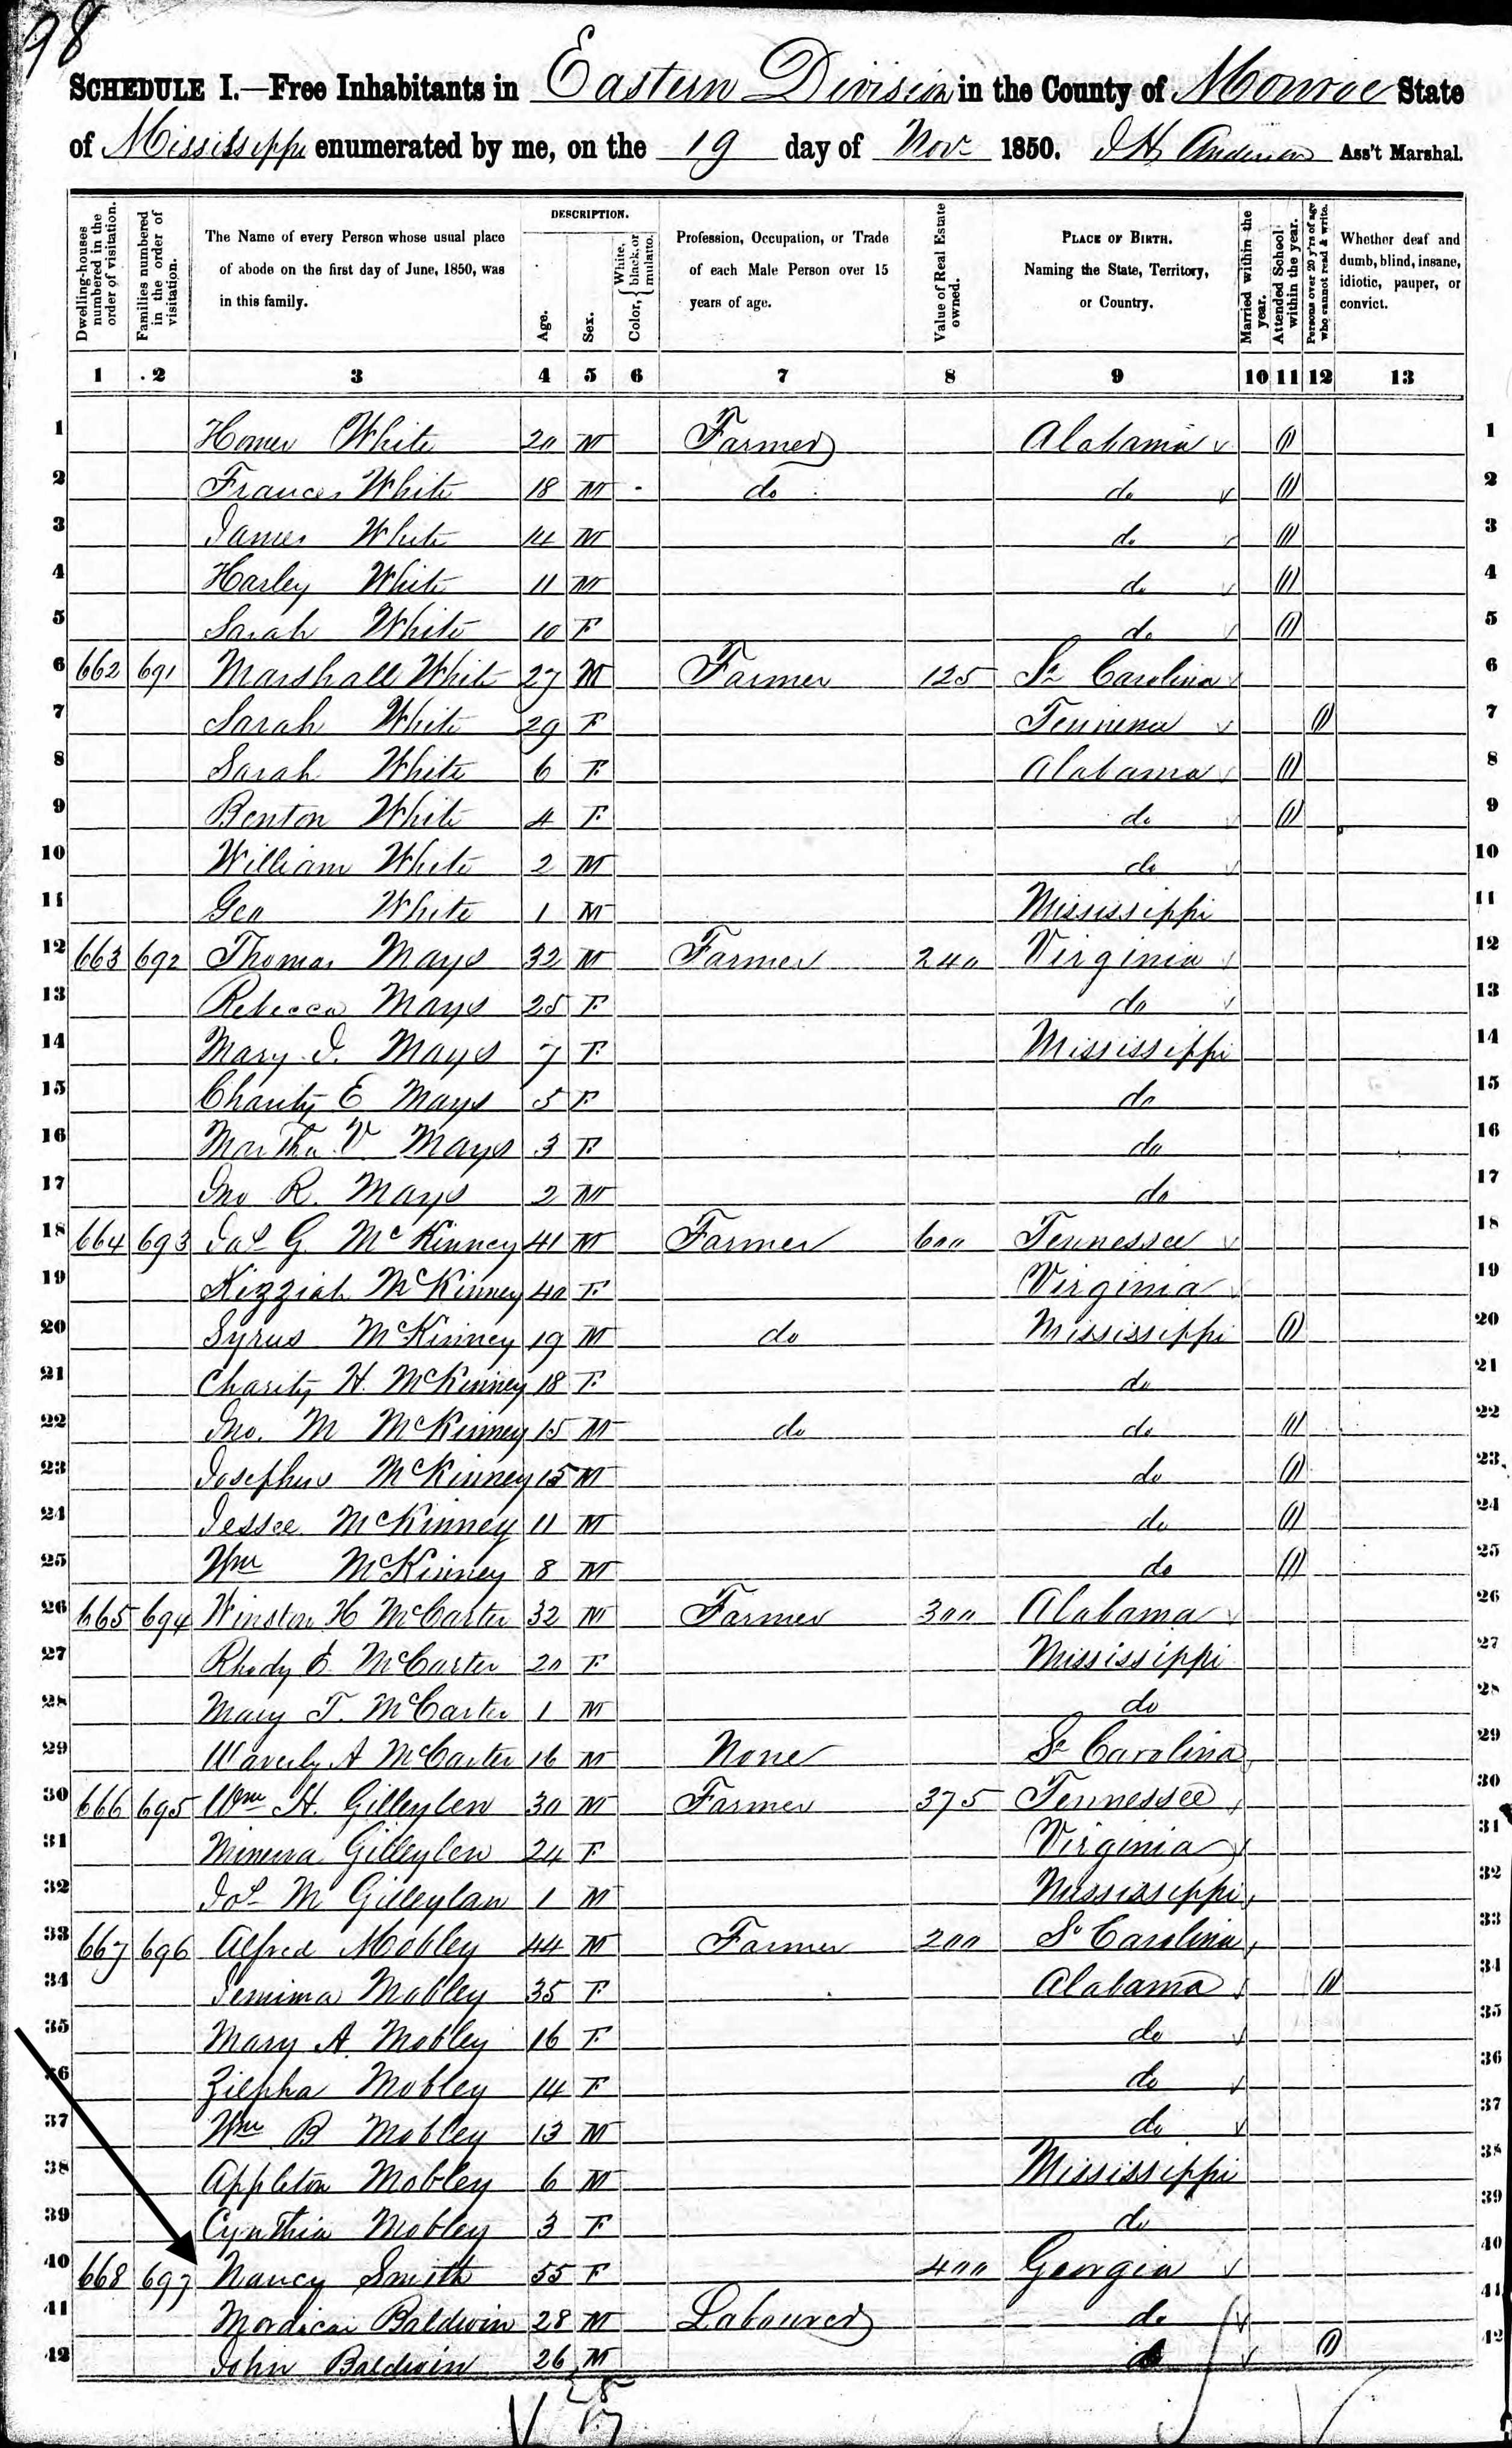 98
SCHEDULE I.—Free Inhabitants in Eastern Division in the County of Monroe State
of Mississippi enumerated by me, on the 19 day of Nov. 1850. Ass't Marshal.
Dwelling-houses numbered in the order of visitation.
Families numbered in the order of visitation.
The Name of every Person whose usual place of abode on the first day of June, 1850, was in this family.
DESCRIPTION.
Age.
Sex.
Color, { White, black, or mulatto.
Profession, Occupation, or Trade of each Male Person over 15 years of age.
Value of Real Estate owned.
PLACE OF BIRTH. Naming the State, Territory, or Country.
Married within the year.
Attended School within the year.
Persons over 20 y'rs of age who cannot read & write.
Whether deaf and dumb, blind, insane, idiotic, pauper, or convict.
1 2 3 4 5 6 7 8 9 10 11 12 13
1 Homer White 20 M Farmer Alabama 1 1
2 Frances White 18 M do do 1 2
3 James White 14 M do 1 3
4 Harley White 11 M do 1 4
5 Sarah White 10 F do 1 5
6 662 691 Marshall White 27 M Farmer 125 So Carolina 6
7 Sarah White 29 F 1 7
8 Sarah White 6 F Alabama 1 8
9 Benton White 4 F do 1 9
10 William White 2 M do 10
11 Geo White 1 M Mississippi 11
12 663 692 Thomas Mays 32 M Farmer 240 Virginia 12
13 Rebecca Mays 25 F do 13
14 Mary J. Mays 7 F Mississippi 14
15 Charity E Mays 5 F do 15
16 Martha V. Mays 3 F do 16
17 Jno R. Mays 2 M do 17
18 664 693 Jas G McKinney 41 M Farmer 600 Tennessee 18
19 Kizziah McKinney 40 F Virginia 19
20 Syrus McKinney 19 M do Mississippi 1 20
21 Charity H. McKinney 18 F do 21
22 Jno. M McKinney 15 M do do 1 22
23 Josephus McKinney 15 M do 1 23
24 Jessee McKinney 11 M do 1 24
25 Wm McKinney 8 M do 1 25
26 665 694 Winston H McCarter 32 M Farmer 300 Alabama 26
27 Rhody E. McCarter 20 F Mississippi 27
28 Mary T. McCarter 1 M do 28
29 Waverly A McCarter 16 M None So Carolina 29
30 666 695 Wm H. Gilleylen 30 M Farmer 375 Tennessee 30
31 Minerva Gilleylen 24 F Virginia 31
32 Jos M Gilleylan 1 M Mississippi 32
33 667 696 Alfred Mobley 44 M Farmer 200 So Carolina 33
34 Jemima Mobley 35 F Alabama 1 34
35 Mary A. Mobley 16 F do 35
36 Zilpha Mobley 14 F do 36
37 Wm B Mobley 13 M do 37
38 Appleton Mobley 6 M Mississippi 38
39 Cynthia Mobley 3 F do 39
40 668 697 Nancy Smith 55 F 400 Georgia 40
41 Mordicai Baldwin 28 M Labourer do 41
42 John Baldwin 26 M do 1 42